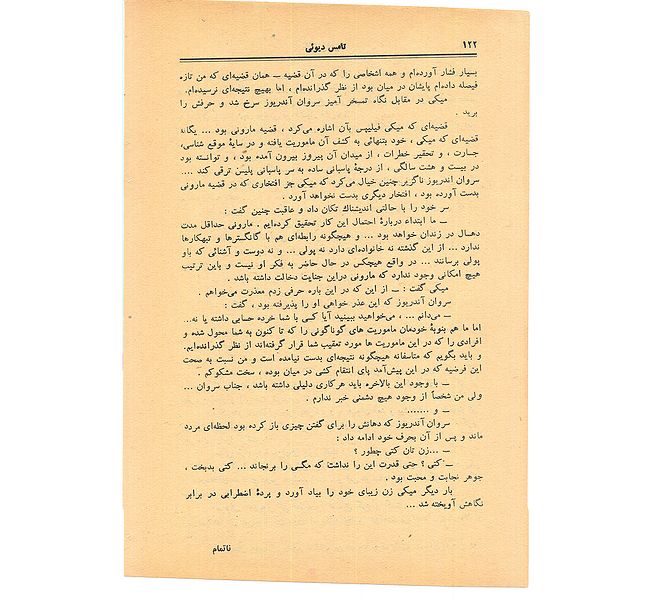 ۱۲۲
تامس دیوئی
بسیار فشار آورده‌ام و همه اشخاصی را که در آن قضیه ـ همان قضیه‌ای که من تازه
فیصله داده‌ام پایشان در میان بود از نظر گذرانده‌ام ، اما بهیچ نتیجه‌ای نرسیده‌ام.
میکی در مقابل نگاه تمسخر آمیز سروان آندریوز سرخ شد و حرفش را
برید .
قضیه‌ای که میکی فیلیپس بآن اشاره می‌کرد ، قضیه مارونی بود ... یگانه
قضیه‌ای که میکی ، خود بتنهائی به کشف آن ماموریت یافته و در سایهٔ موقع شناسی،
جسارت ، و تحقیر خطرات ، از میدان آن پیروز بیرون آمده بود ، و توانسته بود
در بیست و هشت سالگی ، از درجهٔ پاسبانی ساده به سر پاسبانی پلیس ترقی کند ....
سروان اندریوز ناگزیر چنین خیال می‌کرد که میکی جز افتخاری که در قضیه مارونی
بدست آورده بود ، افتخار دیگری بدست نخواهد آورد .
سر خود را با حالتی اندیشناک تکان داد و عاقبت چنین گفت :
ـ ما ابتداء دربارهٔ احتمال این کار تحقیق کرده‌ایم . مارونی حداقل مدت
دهسال در زندان خواهد بود ... و هیچگونه رابطه‌ای هم با گانگسترها و تبهکارها
ندارد ... از این گذشته نه خانواده‌ای دارد نه پولی ... و نه دوست و آشنائی که باو
پولی برسانند ... در واقع هیچکس در حال حاضر به فکر او نیست و باین ترتیب
هیچ امکانی وجود ندارد که مارونی دراین جنایت دخالت داشته باشد .
میکی گفت : ـ از این که در این باره حرفی زدم معذرت می‌خواهم .
سروان آندریوز که این عذر خواهی او را پذیرفته بود ، گفت :
ـ می‌دانم ... ، می‌خواهید ببینید آیا کسی با شما خرده حسابی داشته یا نه...
اما ما هم بنوبهٔ خودمان ماموریت های گوناگونی را که تا کنون به شما محول شده و
افرادی را که در این ماموریت ها مورد تعقیب شما قرار گرفته‌اند از نظر گذرانده‌ایم.
و باید بگویم که متاسفانه هیچگونه نتیجه‌ای بدست نیامده است و من نسبت به صحت
این فرضیه که در این پیش‌آمد پای انتقام کشی در میان بوده ، سخت مشکوکم .
ـ با وجود این بالاخره باید هرکاری دلیلی داشته باشد ، جناب سروان ...
ولی من شخصاً از وجود هیچ دشمنی خبر ندارم .
ـ و .......
سروان آندریوز که دهانش را برای گفتن چیزی باز کرده بود لحظه‌ای مردد
ماند و پس از آن بحرف خود ادامه داد :
ـ ...زن تان کتی چطور ؟
ـ کتی ؟ حتی قدرت این را نداشت که مگسی را برنجاند ... کتی بدبخت ،
جوهر نجابت و محبت بود .
بار دیگر میکی زن زیبای خود را بیاد آورد و پردهٔ اضطرابی در برابر
نگاهش آویخته شد ...
ناتمام